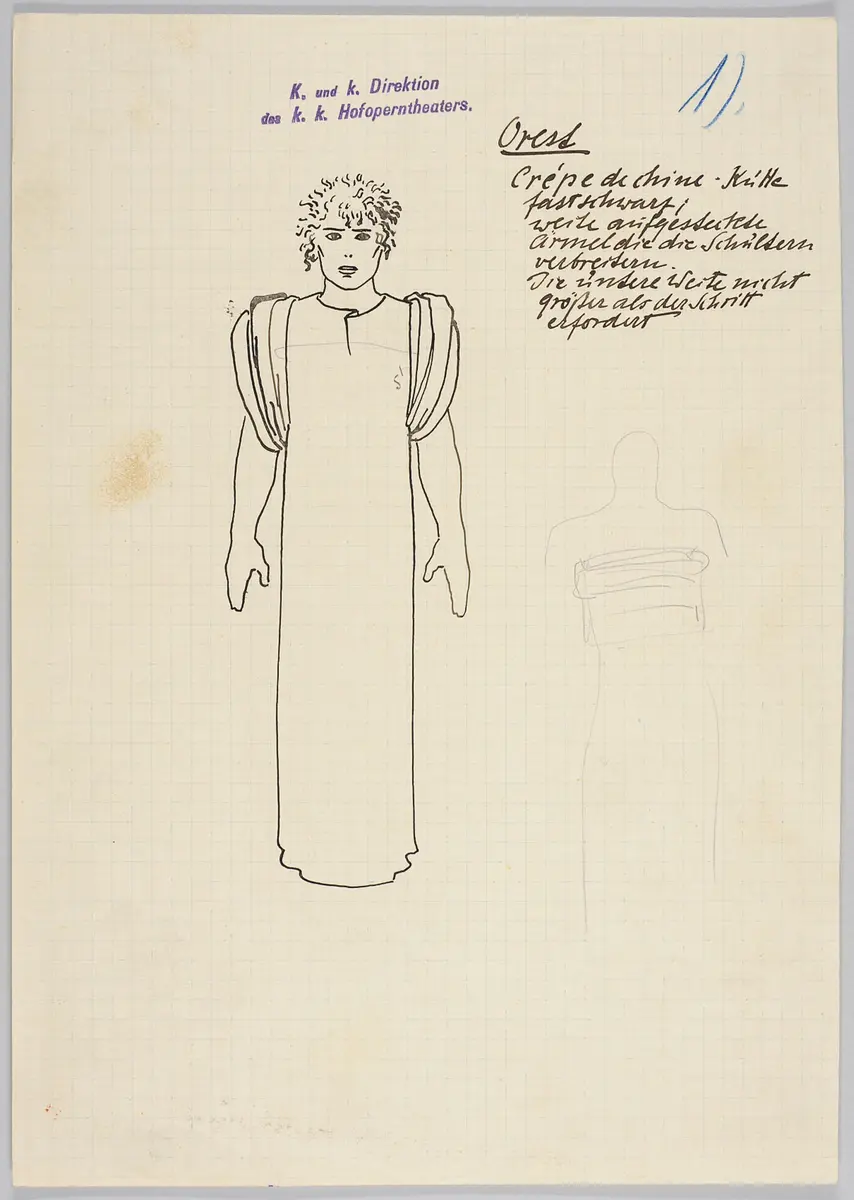 K. und k. Direktion
des k. k. Hofoperntheaters.
1).
Orest
Crépe de chine - Kutte
fast schwarz;
weite aufgesteckte
Ärmel die die Schultern
verbreitern.
Die untere Weite nicht
größer als der Schritt
erfordert